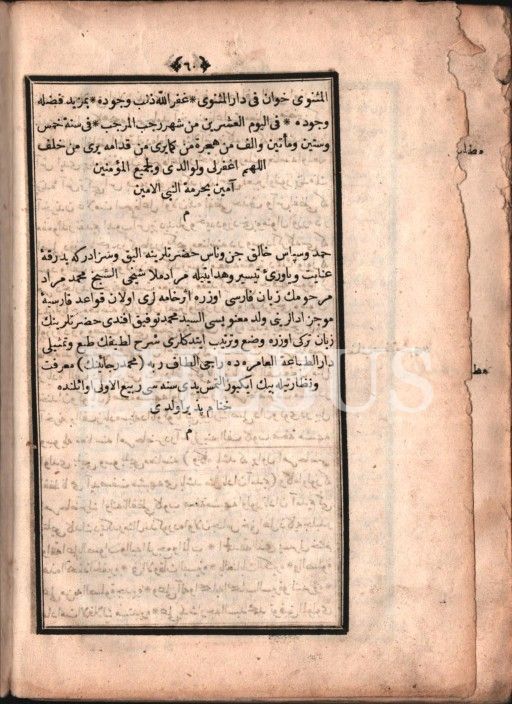 ٦٠
المثنوی خوان فی دار المثنوی * غفر الله ذنب وجوده * بمزید فضله
وجوده * فی الیوم العشرین من شهر رجب المرجب * فی سنة خمس
وستین ومأتین والف من هجرة من کان یری من قدامه یری من خلف
اللهم اغفر لی ولوالدی ولجمیع المؤمنین
آمین بحرمة النبی الامین
م
حمد وسپاس خالق جن وناس حضرتلرینه الیق وسزادرکه بدرقهٔ
عنایت ویاوریٔ تیسیر وهدایتیله مراد ملا شیخی الشیخ محمد مراد
مرحومک زبان فارسی اوزره اثرخامه زی اولان قواعد فارسیهٔ
موجز ادالرینی ولد معنویسی السید محمد توفیق افندی حضرتلرینک
زبان ترکی اوزره وضع وترتیب ایتدکلری شرح لطیفک طبع وتمثیلی
دار الطباعة العامره ده راجی الطاف ربه (محمد رجائینک) معرفت
ونظارتیله بیک ایکیوز التمش یدی سنه سی ربیع الاولی اوائلنده
ختام پذیر اولدی
م
مطلب
BEBUS